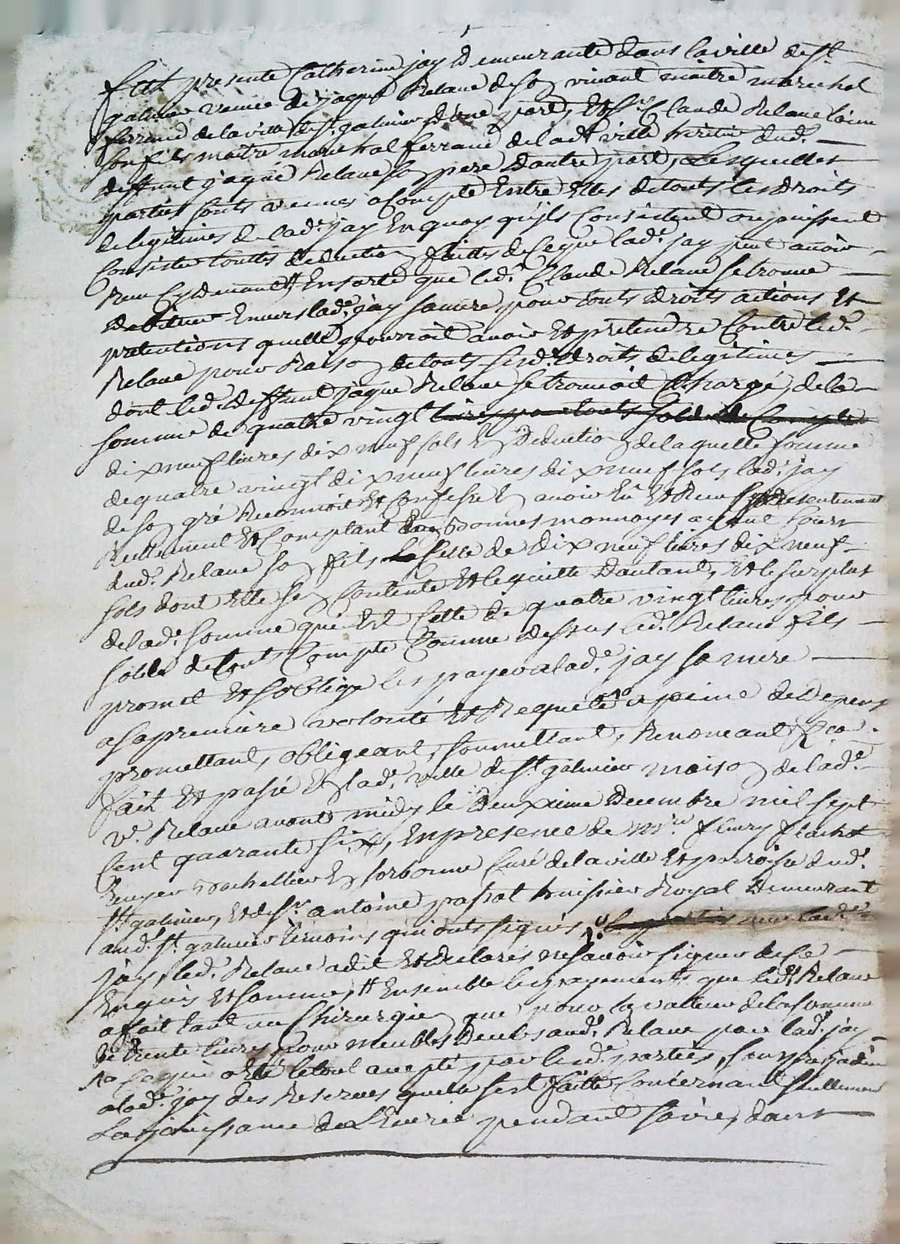 fut presente Catherine jay Demeurante dans la ville de st
galmier veuve de jaque Relave de so vivant maitre marechal
ferrand de la ville de st galmier d'une part, Et sr Claude Relave laine
son fils maitre marechal ferrand de lade ville heritier dud.
deffunt jaque Relave so pere d'autre part, Lesquelles
parties sonts venues a Compte Entre Elles de touts les Droits
de legitimes de lade jay En quoy qu'ils Consistent ou puissent
Consister touttes deduction faittes de Ce que lade jay peut avoir
Receu Cy devant Ensorte que led. Claude Relave se trouve
Debiteur Envers lade jay sa mere pour touts droits actions Et
pretentions quelle pourroit avoir Et pretendre Contre led.
Relave pour Raiso de touts sesd. droits de legitimes
dont led. deffunt jaque Relave se trouvoit Chargé, de la
somme de quatre vingt livres pour touts solde de Compte
dix neuf livres dix neuf sols En deduction de laquelle somme
de quatre vingt dix neuf livres dix neuf sols, lade jay
de so gré Reconnoit Et Confesse En avoir Eu Et Receu presentement
Reellement Et Comptant En bonnes monnoyes ayant Cours
dud. Relave so fils Celle de dix neuf livres dix neuf
sols dont Elle s'en Contente Et le quitte D'autant, Et le surplus
de lade somme qui Est Celle de quatre vingt livres pour
solde de tout Compte Comme dessus led. Relave fils
promet Et s'oblige les payer a lade jay sa mere
a sa premiere volonté Et Requete a peine de Depens
promettant, obligeant, soumettant, Renonceant &ca.
fait Et passé En lade ville de st galmier maiso de lade
ve Relave avant midy le deuxieme Decembre mil sept
Cent quarante six, En presence de mre fleury flachat
bachellier En sorbonne Curé de la ville Et parroisse dud.
st galmier, Et de sr antoine pascal huissier Royal Demeurant
aud. st galmier temoins qui ont signés,
jay, led. Relave a dit Et declarés ne savoir signer de Ce
Enquis Et sommés, Ensemble les payements que led. Relave
a fait tant au Chirurgien que pour la valleur de la somme
de trente livres pour meubles Deub aud. Relave par lade jay
Ce qui a Eté le tout accepté par lesd. parties, sans prejudice
a lade jay des Reserves quelle s'est faitte Concernant
La jouissance de pendant sa vie, dont